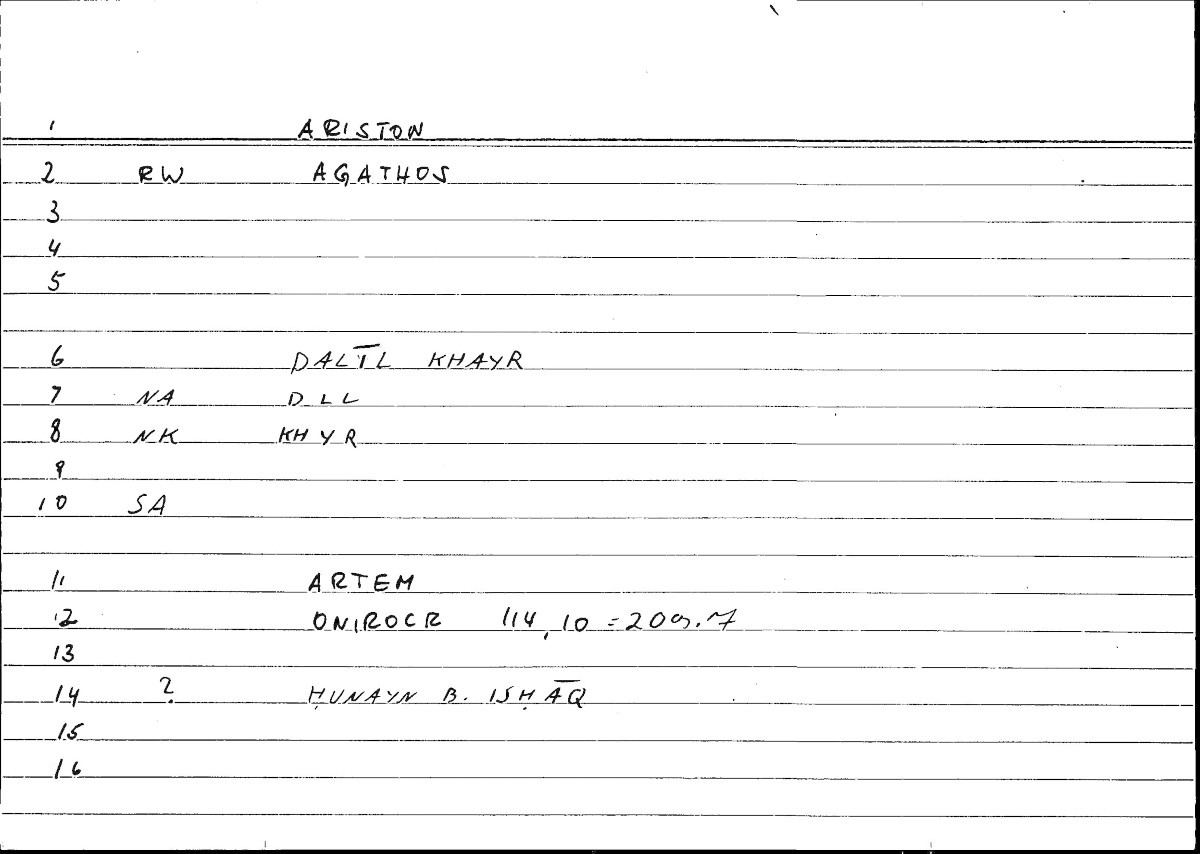 1 ARISTON
2 RW AGATHOS
3
4
5
6 DALĪL KHAYR
7 NA DLL
8 NK KHYR
9
10 SA
11 ARTEM
12 ONIROCR 114,10 = 209.7
13
14 ? ḤUNAYN B. ISḤĀQ
15
16